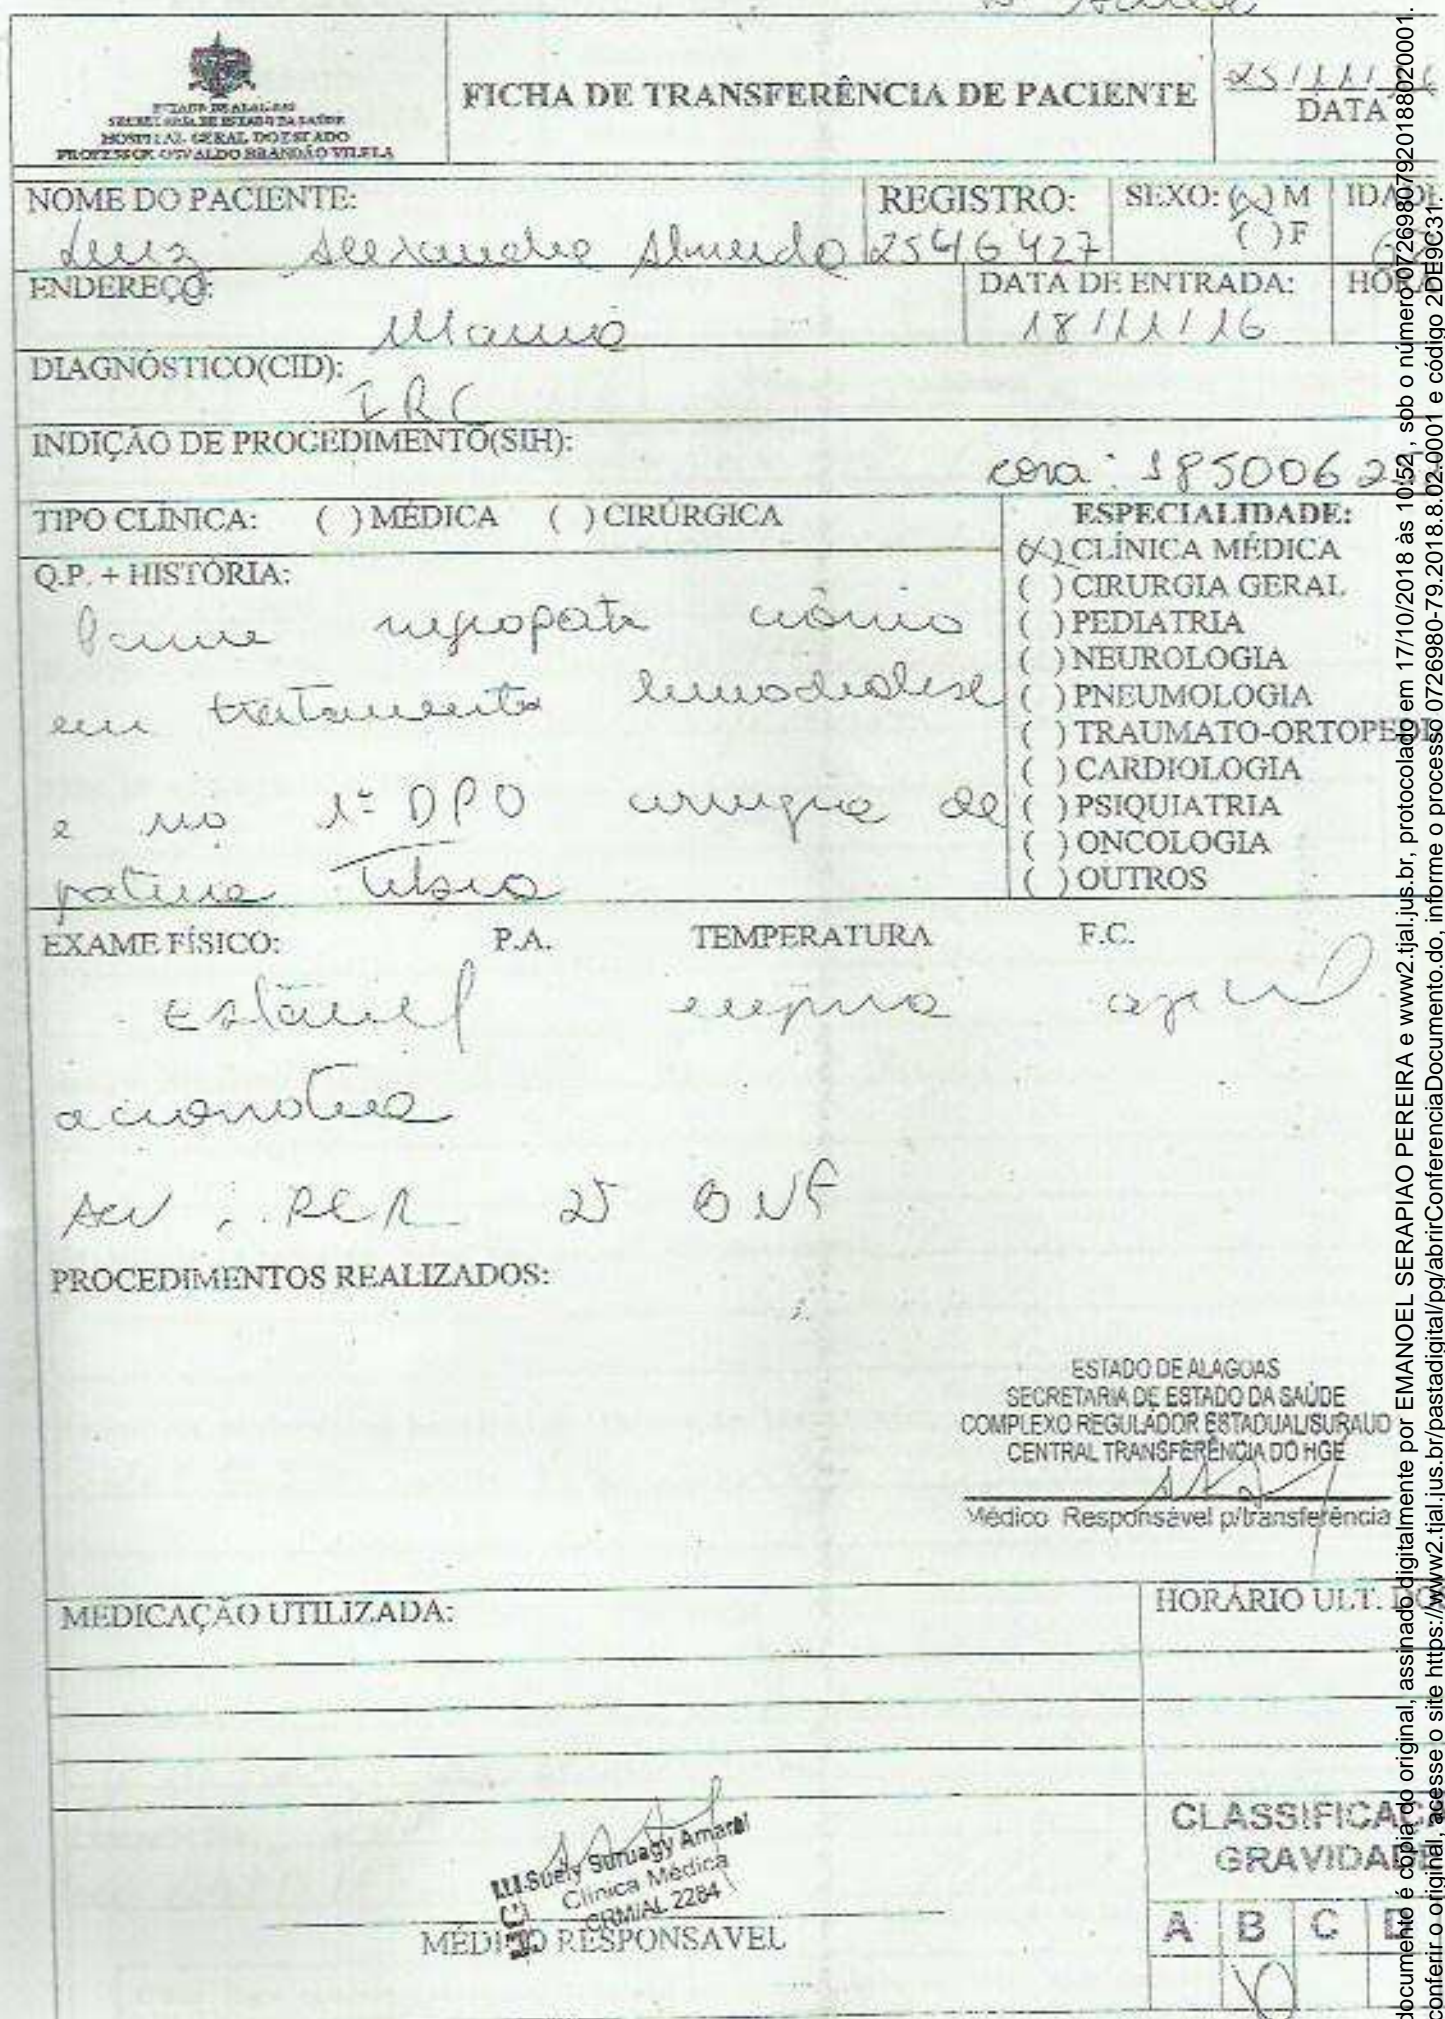 ESTADO DE ALAGOAS
SECRETARIA DE ESTADO DA SAÚDE
HOSPITAL GERAL DO ESTADO
PROFESSOR OSVALDO BRANDÃO VILELA
FICHA DE TRANSFERÊNCIA DE PACIENTE
25/11/16
DATA
NOME DO PACIENTE:
Luiz Alexandre Almeida
REGISTRO:
25416427
SEXO: (X) M
( ) F
ENDEREÇO:
Maceió
DATA DE ENTRADA:
18/11/16
DIAGNÓSTICO(CID):
IRC
INDIÇÃO DE PROCEDIMENTO(SIH):
cora: 185006
TIPO CLÍNICA: ( ) MÉDICA ( ) CIRÚRGICA
ESPECIALIDADE:
(X) CLÍNICA MÉDICA
( ) CIRURGIA GERAL
( ) PEDIATRIA
( ) NEUROLOGIA
( ) PNEUMOLOGIA
( ) TRAUMATO-ORTOPEDI
( ) CARDIOLOGIA
( ) PSIQUIATRIA
( ) ONCOLOGIA
( ) OUTROS
Q.P. + HISTÓRIA:
nefropata crônico
em tratamento hemodialise
e no 1º DPO cirurgia de
Tibia
EXAME FÍSICO: P.A. TEMPERATURA F.C.
Estável eupneia
acianotico
ACV: RCR 2T BNF
PROCEDIMENTOS REALIZADOS:
ESTADO DE ALAGOAS
SECRETARIA DE ESTADO DA SAÚDE
COMPLEXO REGULADOR ESTADUAL/SURAUD
CENTRAL TRANSFERÊNCIA DO HGE
Médico Responsável p/transferência
MEDICAÇÃO UTILIZADA:
HORÁRIO ULT.
Suely Suruagy Amaral
Clínica Médica
CRM/AL 2284
MÉDICO RESPONSAVEL
CLASSIFICAÇÃ
GRAVIDADE
A B C D
documento é cópia do original, assinado digitalmente por EMANOEL SERAPIAO PEREIRA e www2.tjal.jus.br, protocolado em 17/10/2018 às 10:52 , sob o número 07269807920188020001.
conferir o original, acesse o site https://www2.tjal.jus.br/pastadigital/pg/abrirConferenciaDocumento.do, informe o processo 0726980-79.2018.8.02.0001 e código 2DE9C31.